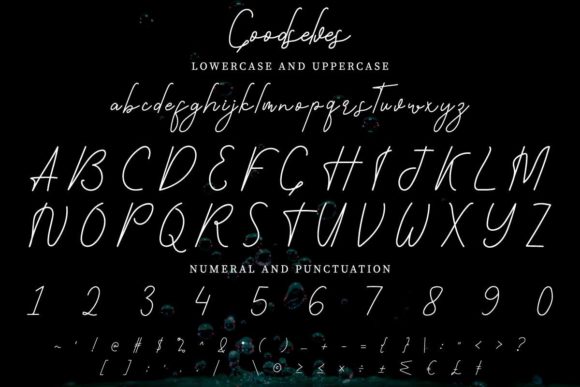 Goodselves
LOWERCASE AND UPPERCASE
abcdefghijklmnopqrstuvwxyz
ABCDEFGHIJKLM
NOPQRSTUVWXYZ
NUMERAL AND PUNCTUATION
1 2 3 4 5 6 7 8 9 0
~ ' ! @ # $ % ^ & * ( ) _ - + = { } | : " < >
[ ] ; , . / ? © ≥ ≤ × ÷ ± € £